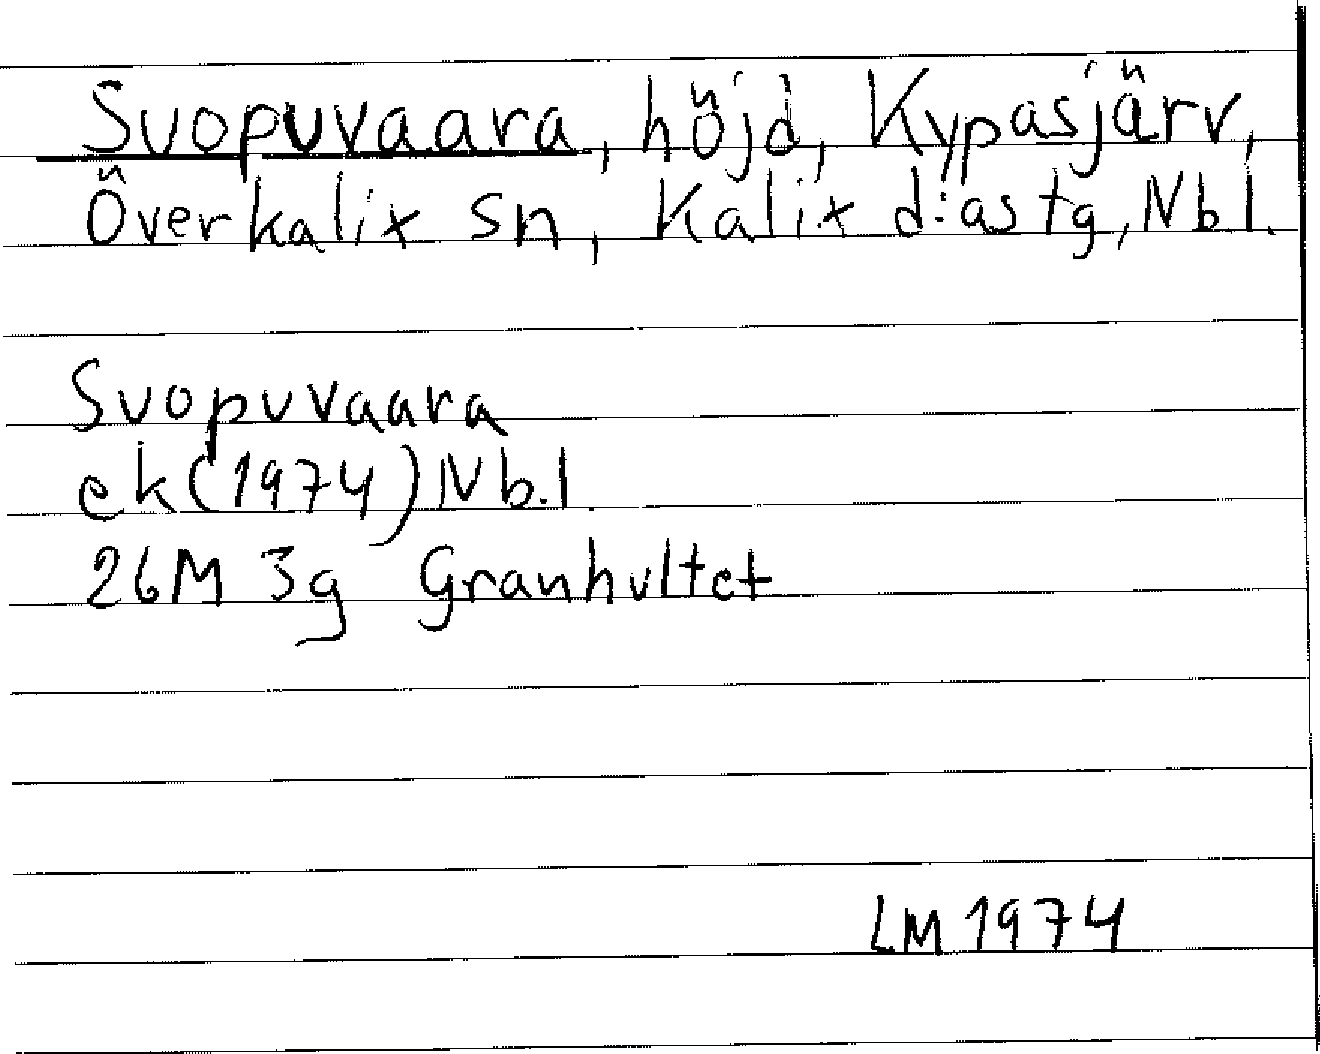 Suopuvaara, höjd, Kypasjärv,
Överkalix sn, Kalix d:astg, Nb.l.
Suopuvaara
ek (1974) Nb.l
26M 3g Granhultet
LM 1974